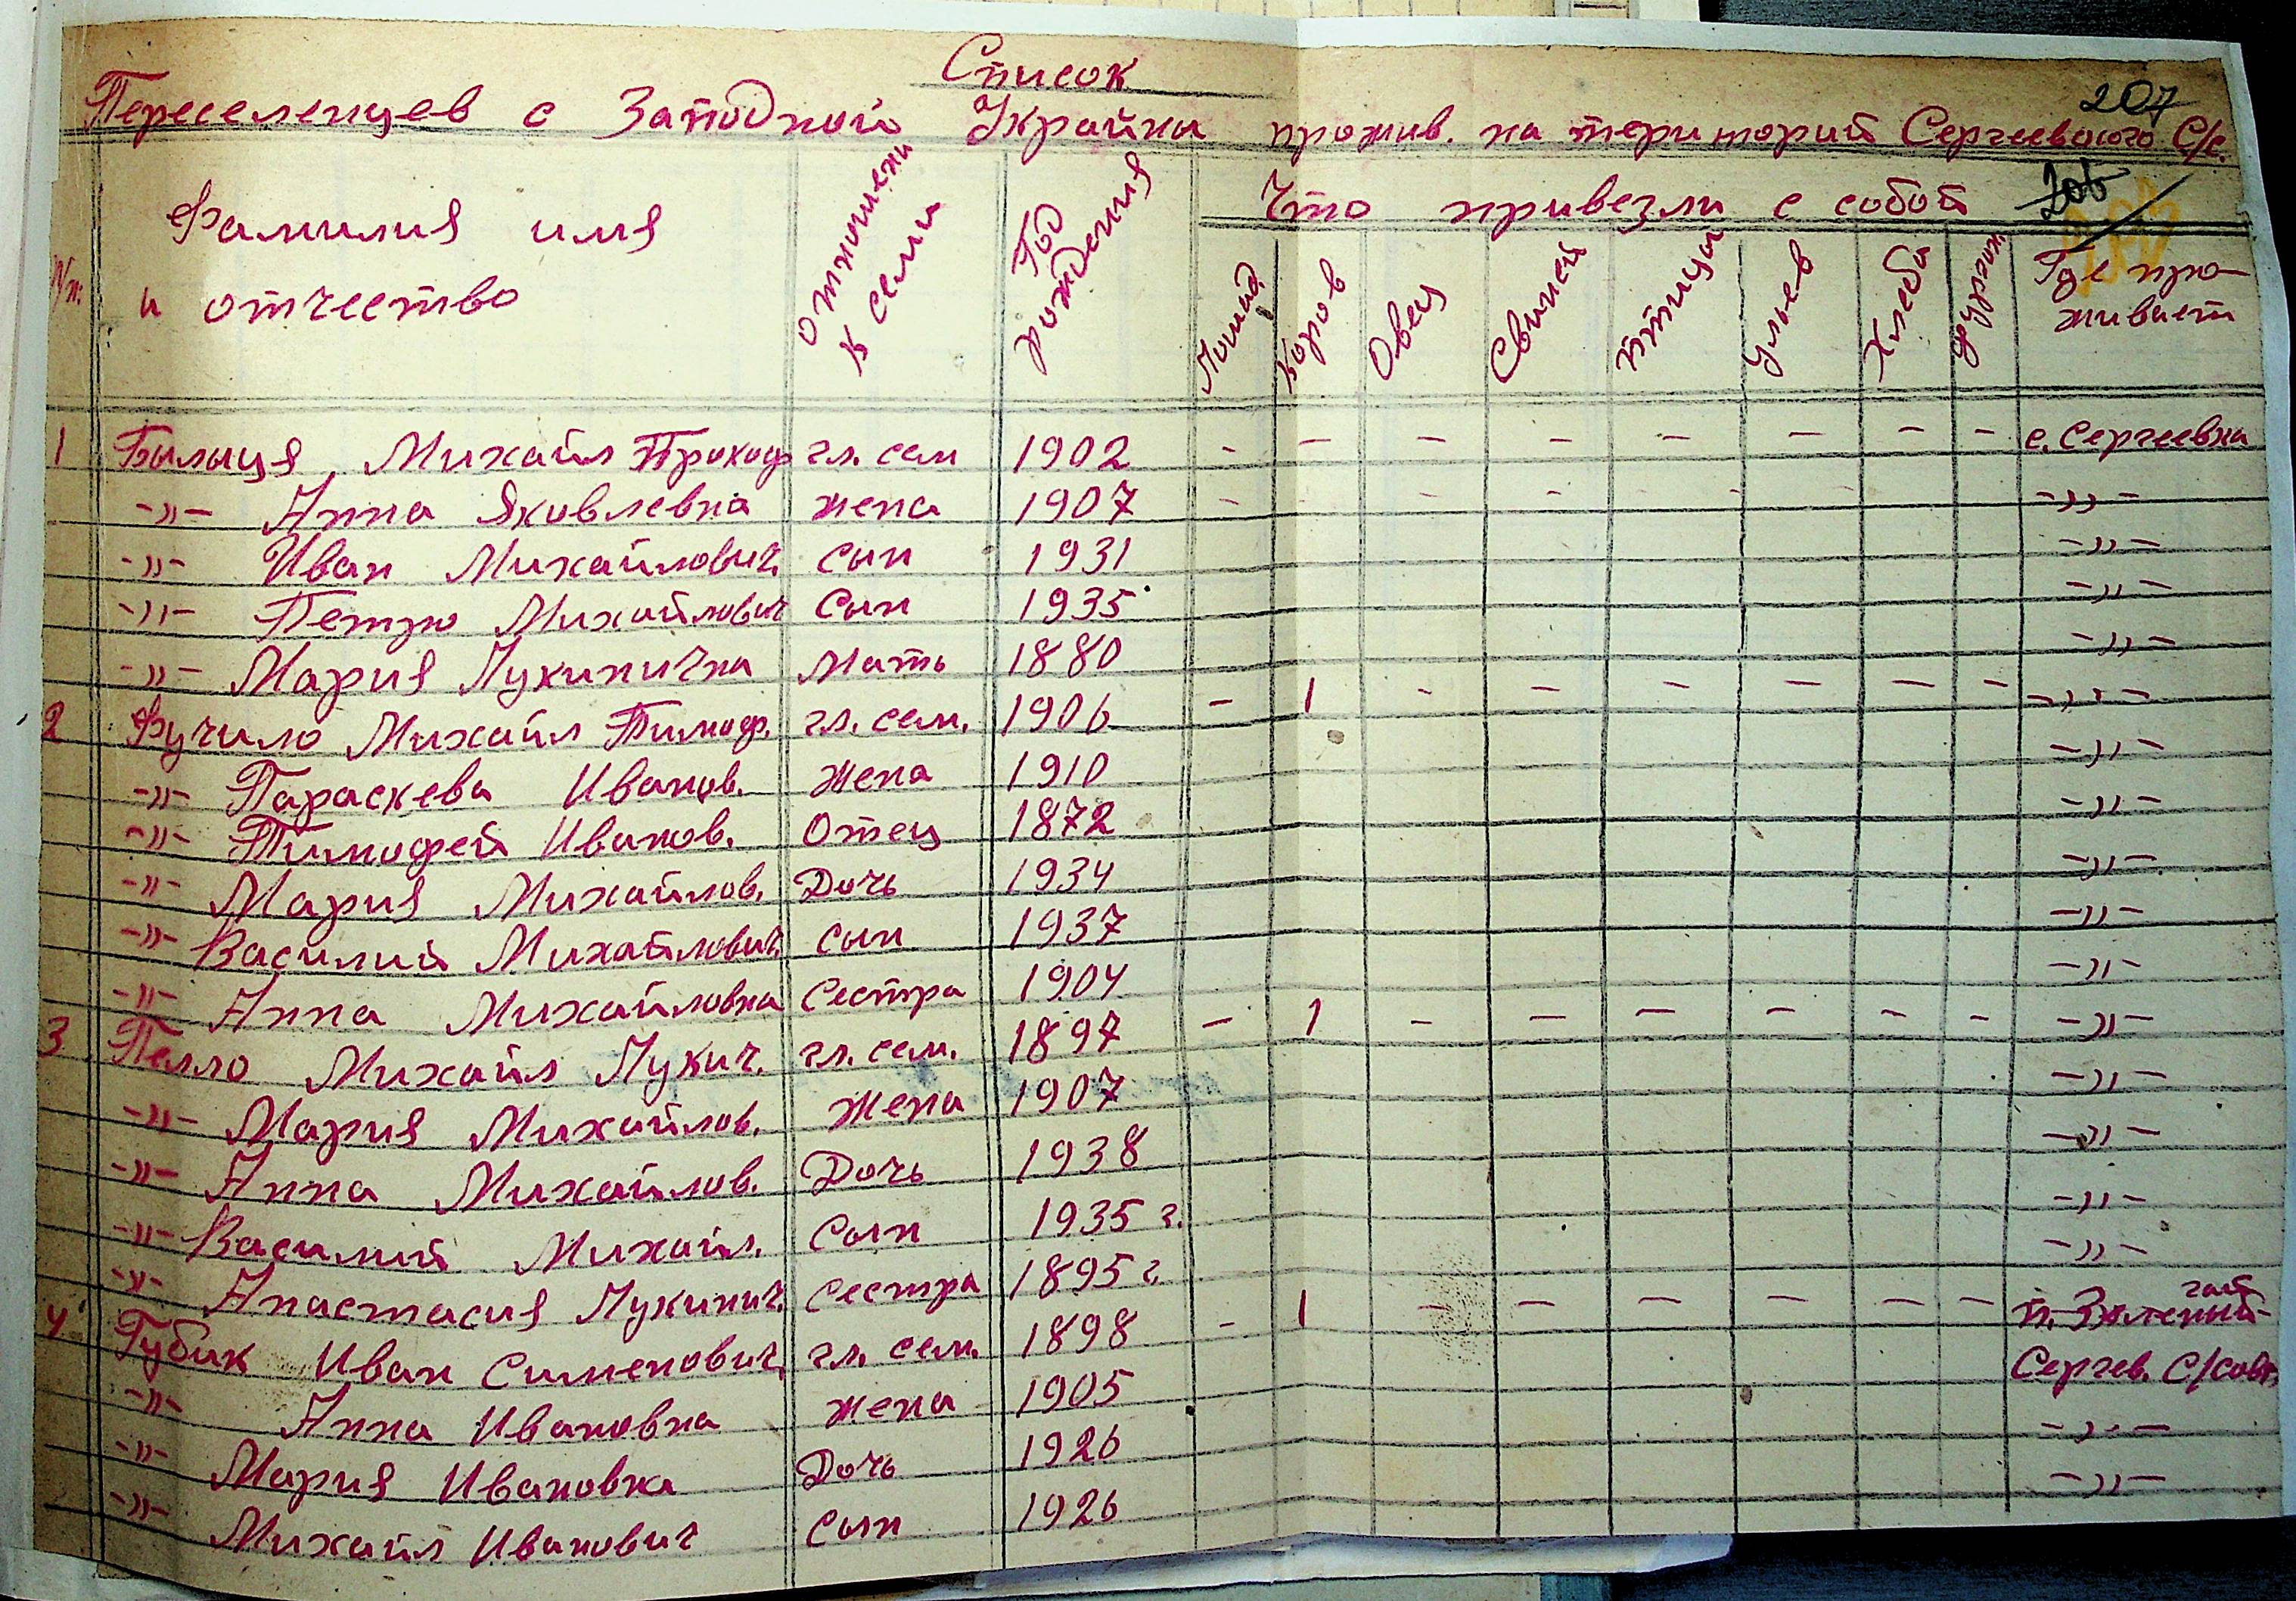 Список
207
Переселенцев с Западной Украйны прожив. на територий Сергеевского С/с.
206
№/п. Фамилия имя и отчество отношени к семи Год рождения Что привезли с собой Где проживает
Лошад Коров Овец Свиней птицы ульев Хлеба фураж
1 Былыця Михайл Прокоф гл. сем 1902 - - - - - - - - с. Сергеевка
-"- Анна Яковлевна жена 1907 - - - - - - -"-
-"- Иван Михайлович сын 1931 -"-
-"- Петро Михайлович сын 1935 -"-
-"- Мария Лукинична Мать 1880 -"-
2 Фучило Михайл Тимоф. гл. сем. 1906 - 1 - - - - - - -"-
-"- Параскева Иванов. жена 1910 -"-
-"- Тимофей Иванов. Отец 1872 -"-
-"- Мария Михайлов. Дочь 1934 -"-
-"- Василий Михайлович сын 1937 -"-
-"- Анна Михайловна Сестра 1904 -"-
3 Пелло Михайл Лукич. гл. сем. 1897 - 1 - - - - - - -"-
-"- Мария Михайлов. жена 1907 -"-
-"- Анна Михайлов. Дочь 1938 -"-
-"- Василий Михайл. Сын 1935 г. -"-
-"- Анастасия Лукинич. Сестра 1895 г. -"-
4 Губик Иван Сименович гл. сем. 1898 - 1 - - - - - - п. Зеленый гай
Сергеев. С/совт.
-"- Анна Ивановна жена 1905
-"- Мария Ивановна Дочь 1926 -"-
-"- Михайл Иванович сын 1926 -"-